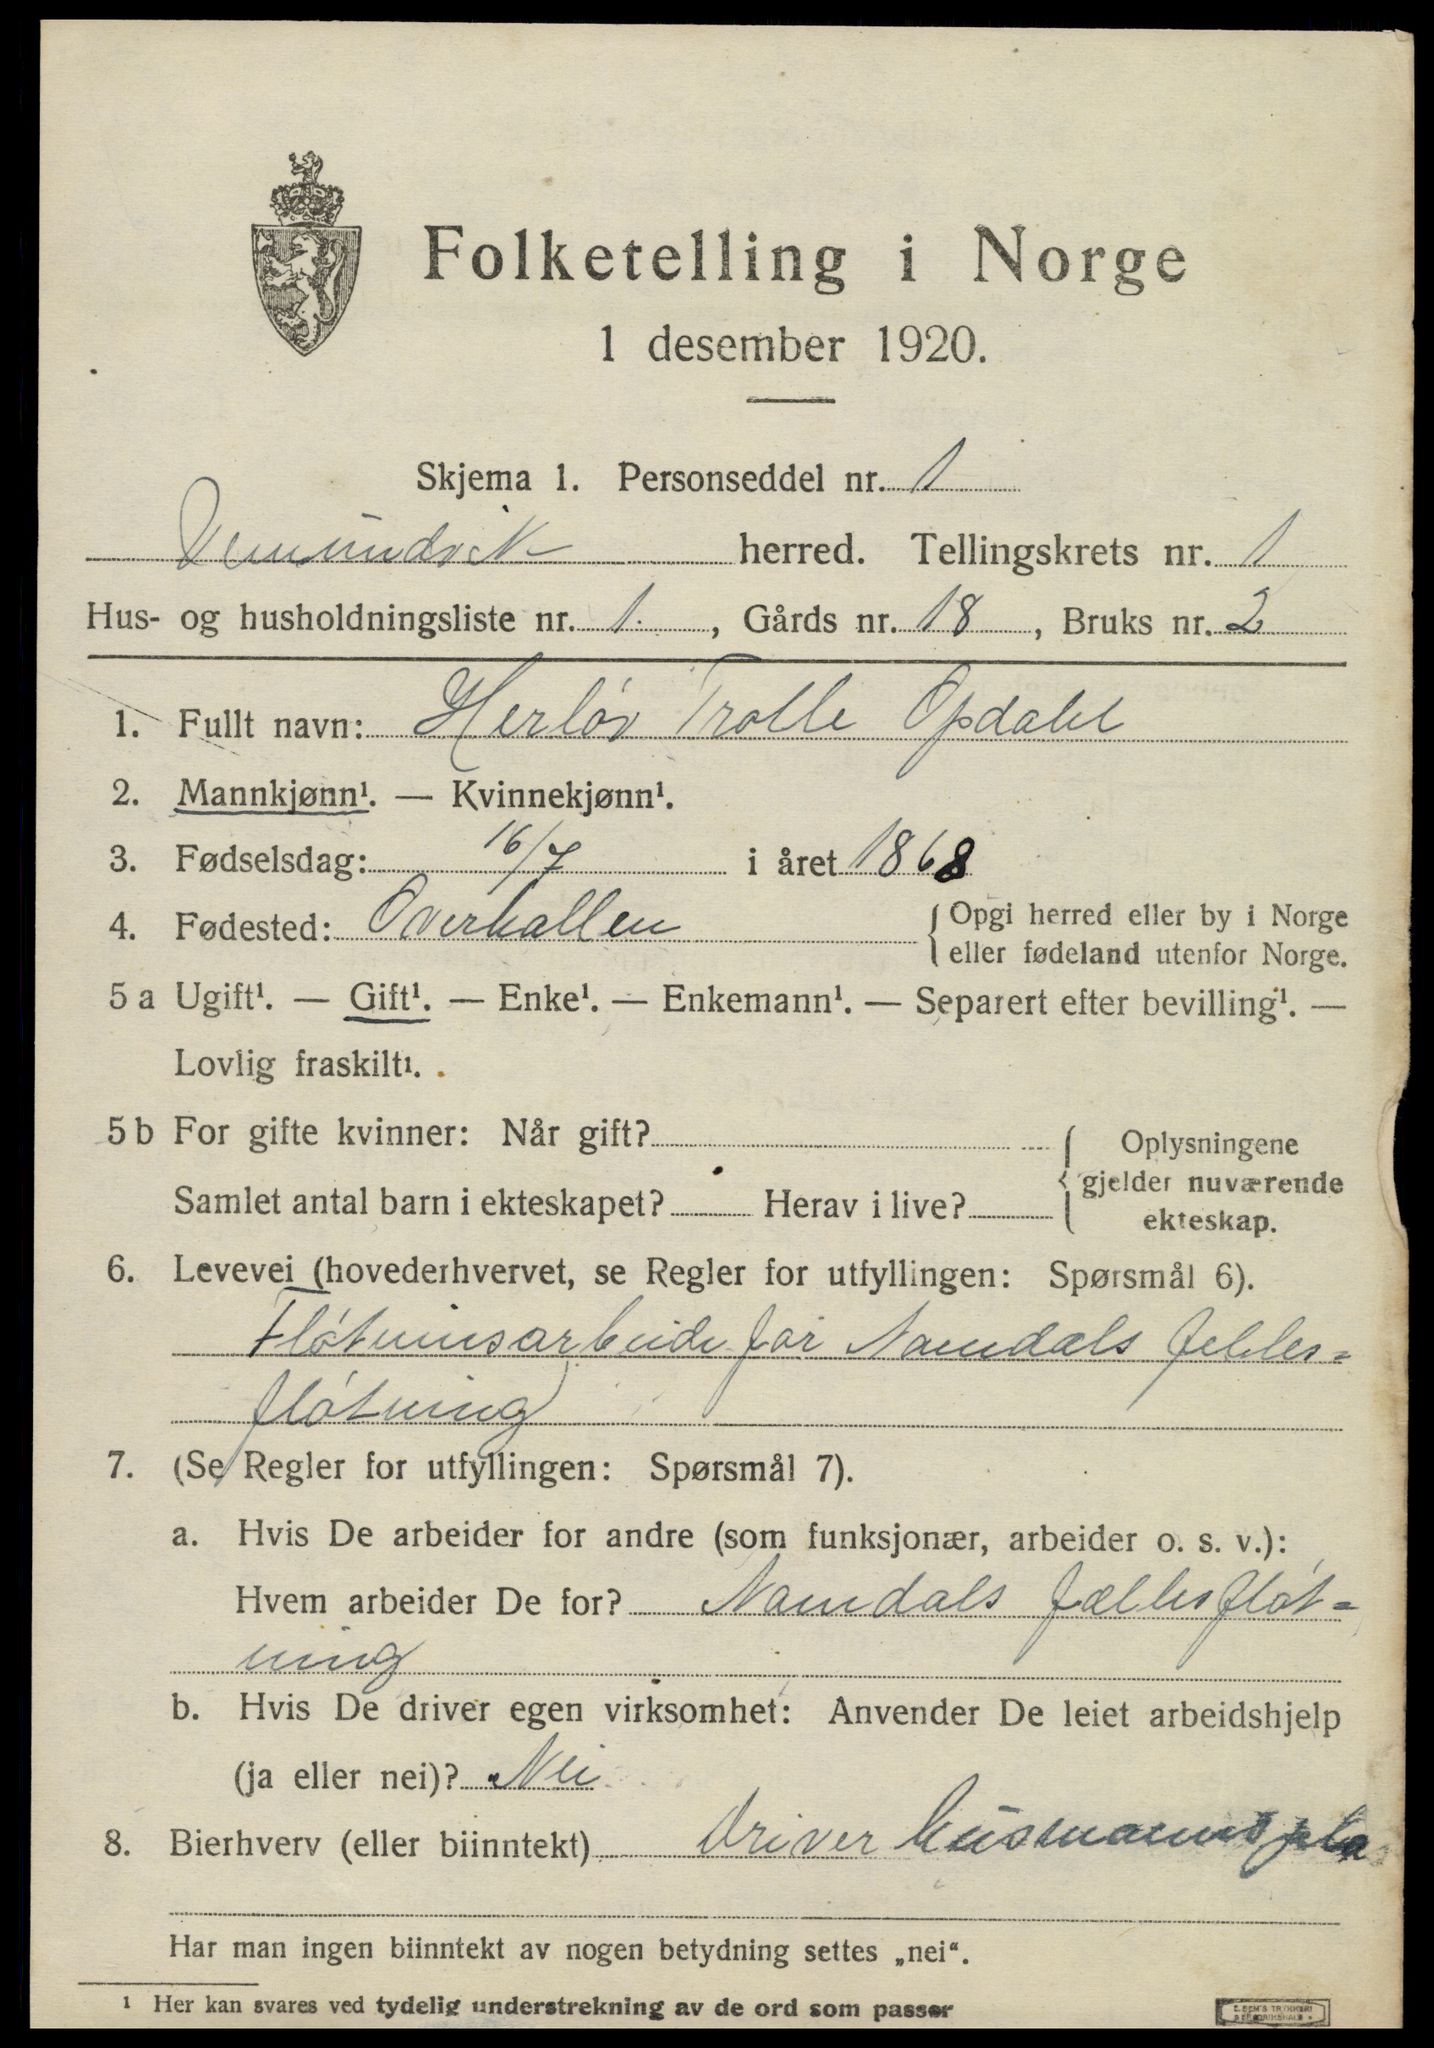 Folketelling i Norge
1 desember 1920.
Skjema 1. Personseddel nr. 1
Vemundvik herred. Tellingskrets nr. 1
Hus- og husholdningsliste nr. 1. , Gårds nr. 18 , Bruks nr. 2
1. Fullt navn: Herløv Trolle Opdahl
2. Mannkjønn¹. — Kvinnekjønn¹.
3. Fødselsdag: 16/7 i året 1868
4. Fødested: Overhallen { Opgi herred eller by i Norge
eller fødeland utenfor Norge.
5 a Ugift¹. — Gift¹. — Enke¹. — Enkemann¹. — Separert efter bevilling¹. —
Lovlig fraskilt¹.
5 b For gifte kvinner: Når gift? { Oplysningene
gjelder nuværende
ekteskap.
Samlet antal barn i ekteskapet? Herav i live?
6. Levevei (hovederhvervet, se Regler for utfyllingen: Spørsmål 6).
Fløtninsarbeide for Namdals felles=
fløtning
7. (Se Regler for utfyllingen: Spørsmål 7).
a. Hvis De arbeider for andre (som funksjonær, arbeider o. s. v.):
Hvem arbeider De for? Namdals fællesfløt=
ning
b. Hvis De driver egen virksomhet: Anvender De leiet arbeidshjelp
(ja eller nei)? Nei
8. Bierhverv (eller biinntekt) Driver husmannspla
Har man ingen biinntekt av nogen betydning settes „nei“.
¹ Her kan svares ved tydelig understrekning av de ord som passer